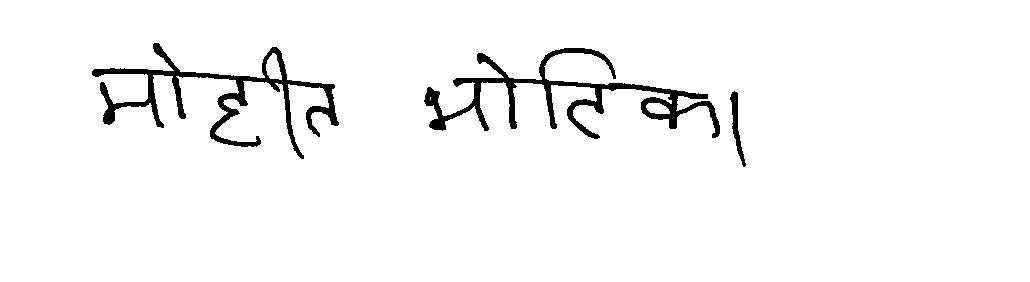 मोहीत भोटिका